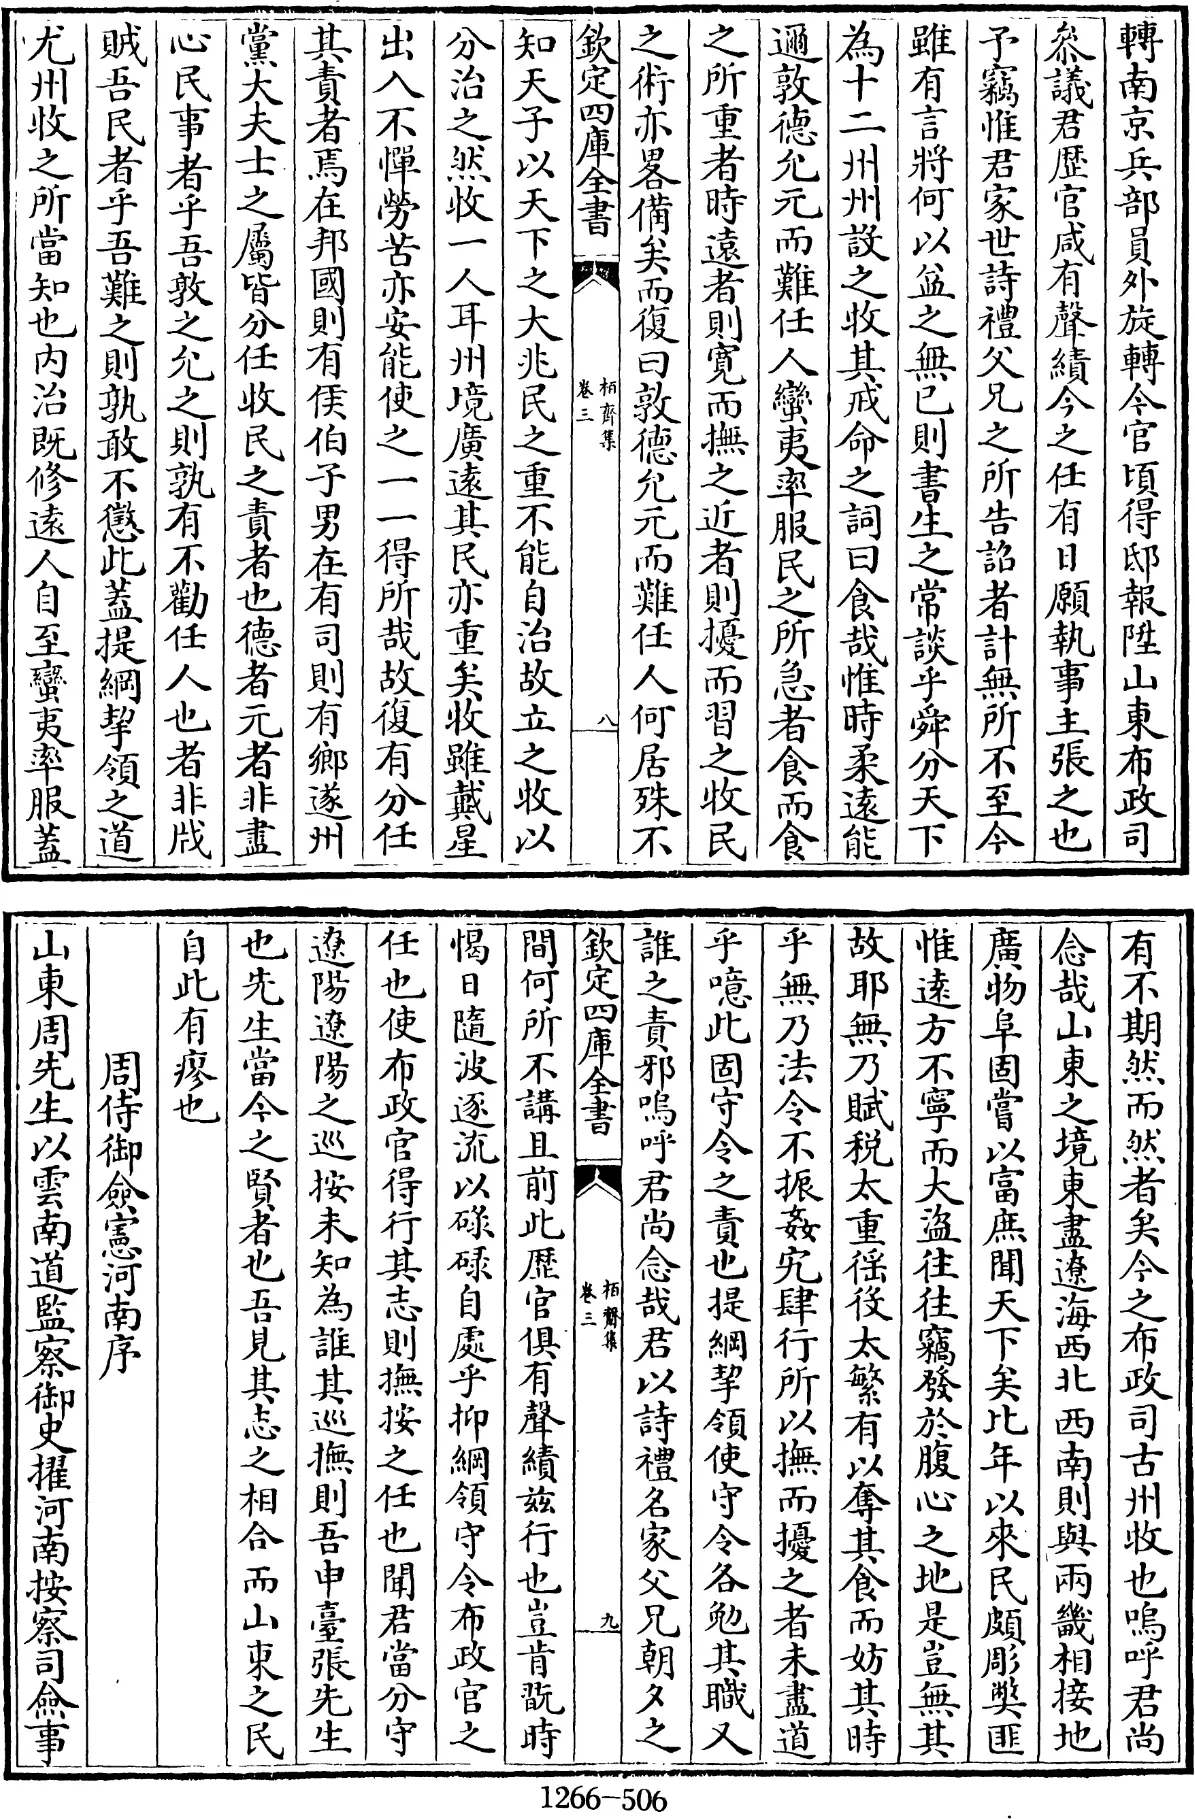 轉南京兵部員外旋轉今官頃得邸報陞山東布政司
叅議君歴官咸有聲績今之任有日願執事主張之也
予竊惟君家世詩禮父兄之所告詔者計無所不至今
雖有言將何以益之無已則書生之常談乎舜分天下
為十二州州設之牧其戒命之詞曰食哉惟時柔遠能
邇敦徳允元而難任人蠻夷率服民之所急者食而食
之所重者時遠者則寛而撫之近者則擾而習之牧民
之術亦畧備矣而復曰敦徳允元而難任人何居殊不
欽定四庫全書
栢齋集
卷三
八
知天子以天下之大兆民之重不能自治故立之牧以
分治之然牧一人耳州境廣逺其民亦重矣牧雖戴星
出入不憚勞苦亦安能使之一一得所哉故復有分任
其責者焉在邦國則有侯伯子男在有司則有鄉遂州
黨大夫士之屬皆分任牧民之責者也徳者元者非盡
心民事者乎吾敦之允之則孰有不勸任人也者非戕
賊吾民者乎吾難之則孰敢不懲此蓋提綱挈領之道
尤州牧之所當知也内治既修遠人自至蠻夷率服蓋
有不期然而然者矣今之布政司古州牧也嗚呼君尚
念哉山東之境東盡遼海西北西南則與兩畿相接地
廣物阜固嘗以富庶聞天下矣比年以來民頗彫弊匪
惟遠方不寧而大盗往往竊發於腹心之地是豈無其
故耶無乃賦税太重徭役太繁有以奪其食而妨其時
乎無乃法令不振姦宄肆行所以撫而擾之者未盡道
乎噫此固守令之責也提綱挈領使守令各勉其職又
誰之責邪嗚呼君尚念哉君以詩禮名家父兄朝夕之
欽定四庫全書
栢齋集
卷三
九
間何所不講且前此歴官俱有聲績兹行也豈肯翫時
愒日隨波逐流以碌碌自處乎抑綱領守令布政官之
任也使布政官得行其志則撫按之任也聞君當分守
遼陽遼陽之巡按未知為誰其巡撫則吾申臺張先生
也先生當今之賢者也吾見其志之相合而山東之民
自此有瘳也
周侍御僉憲河南序
山東周先生以雲南道監察御史擢河南按察司僉事
1266-506